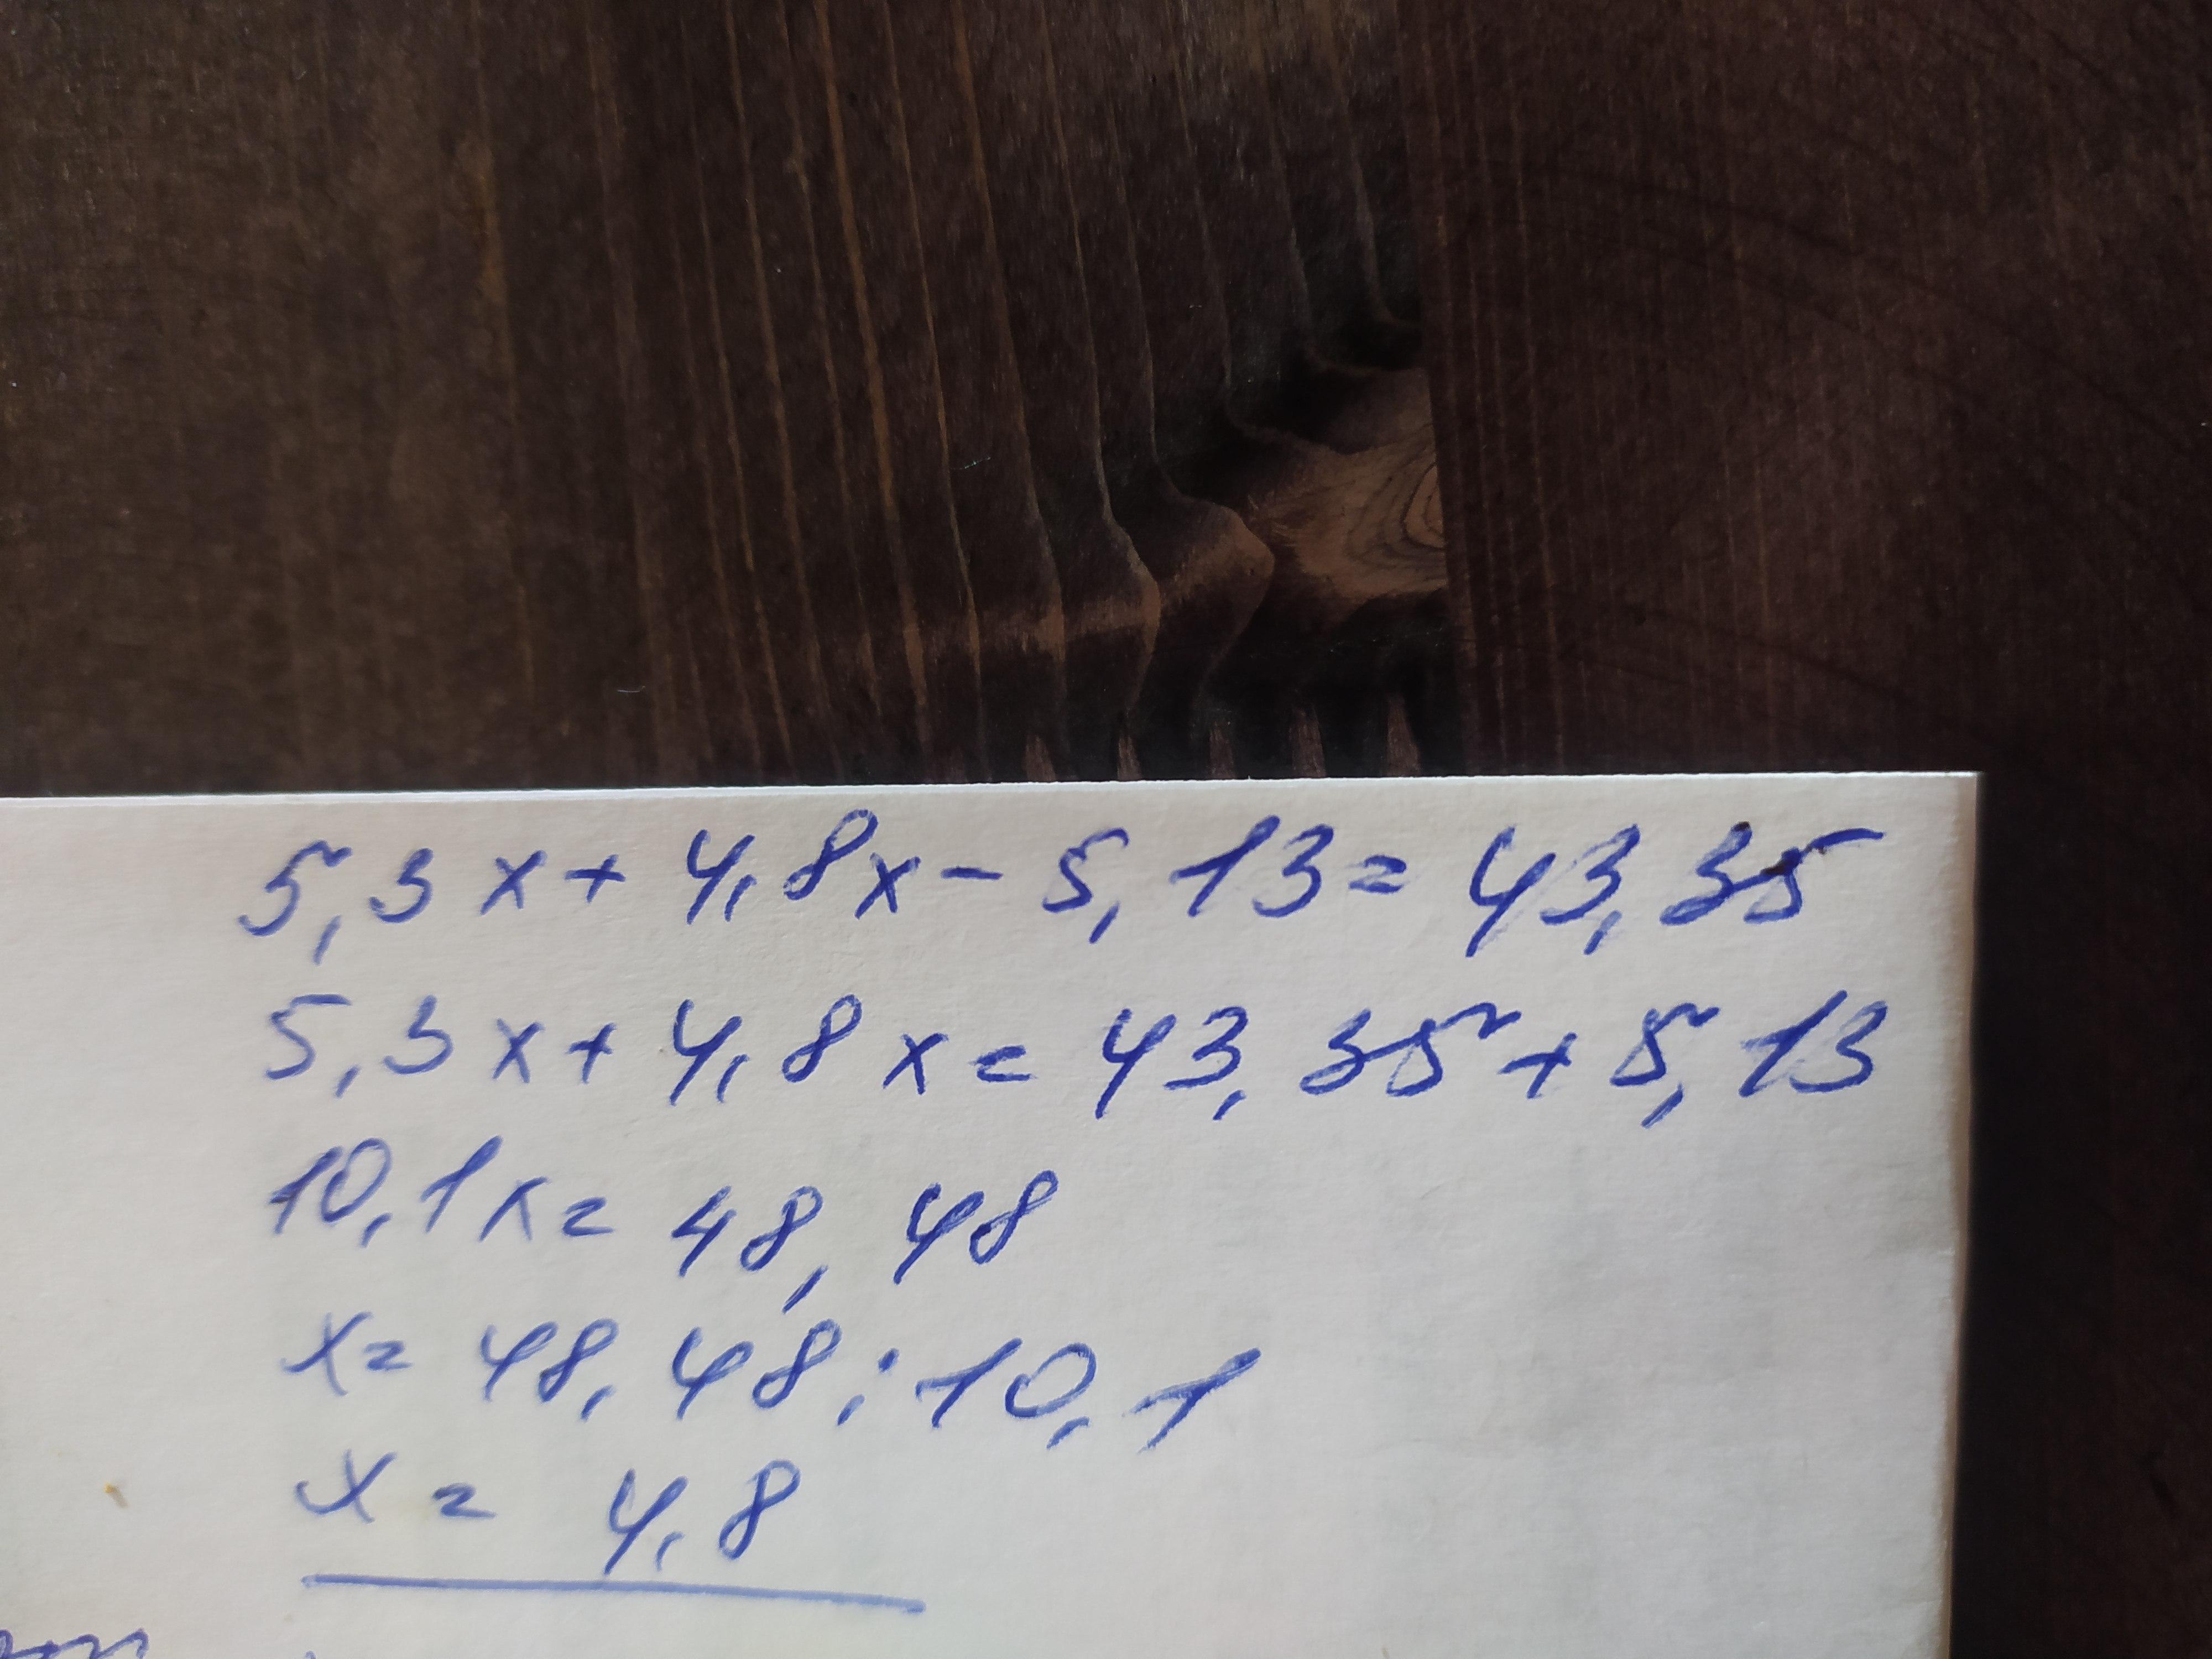 5,3x+ 4,8x- 5,13= 43,35
5,3x+ 4,8x= 43,35+5,13
10,1x= 48,48
x= 48,48:10,1
x= 4,8